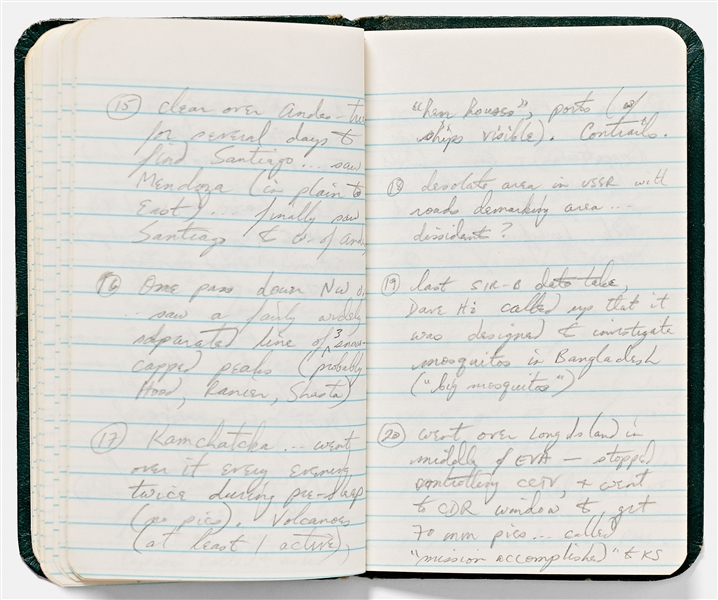 (15) clear over Andes - tr
for several days to
find Santiago ... saw
Mendoza (in plain to
East) ... finally saw
Santiago & W. of And
(16) One pass down NW
... saw a fairly widely
separated line of 3 snow-
capped peaks (probably
Hood, Ranier, Shasta)
(17) Kamchatcka ... went
over it every evening
twice during pre-sleep
(no pics). Volcanoes
(at least 1 active),
"Pen houses", ports (w/
ships visible). Contrails.
(18) desolate area in USSR with
roads demarking area ...
dissident?
(19) last SIR-B data take,
Dave H's called up that it
was designed to investigate
mosquitos in Bangladesh
("big mosquitos")
(20) went over Long Island in
middle of EVA — stopped
controlling CCTV, & went
to CDR window to get
70 mm pics ... called
"mission accomplished" to KS